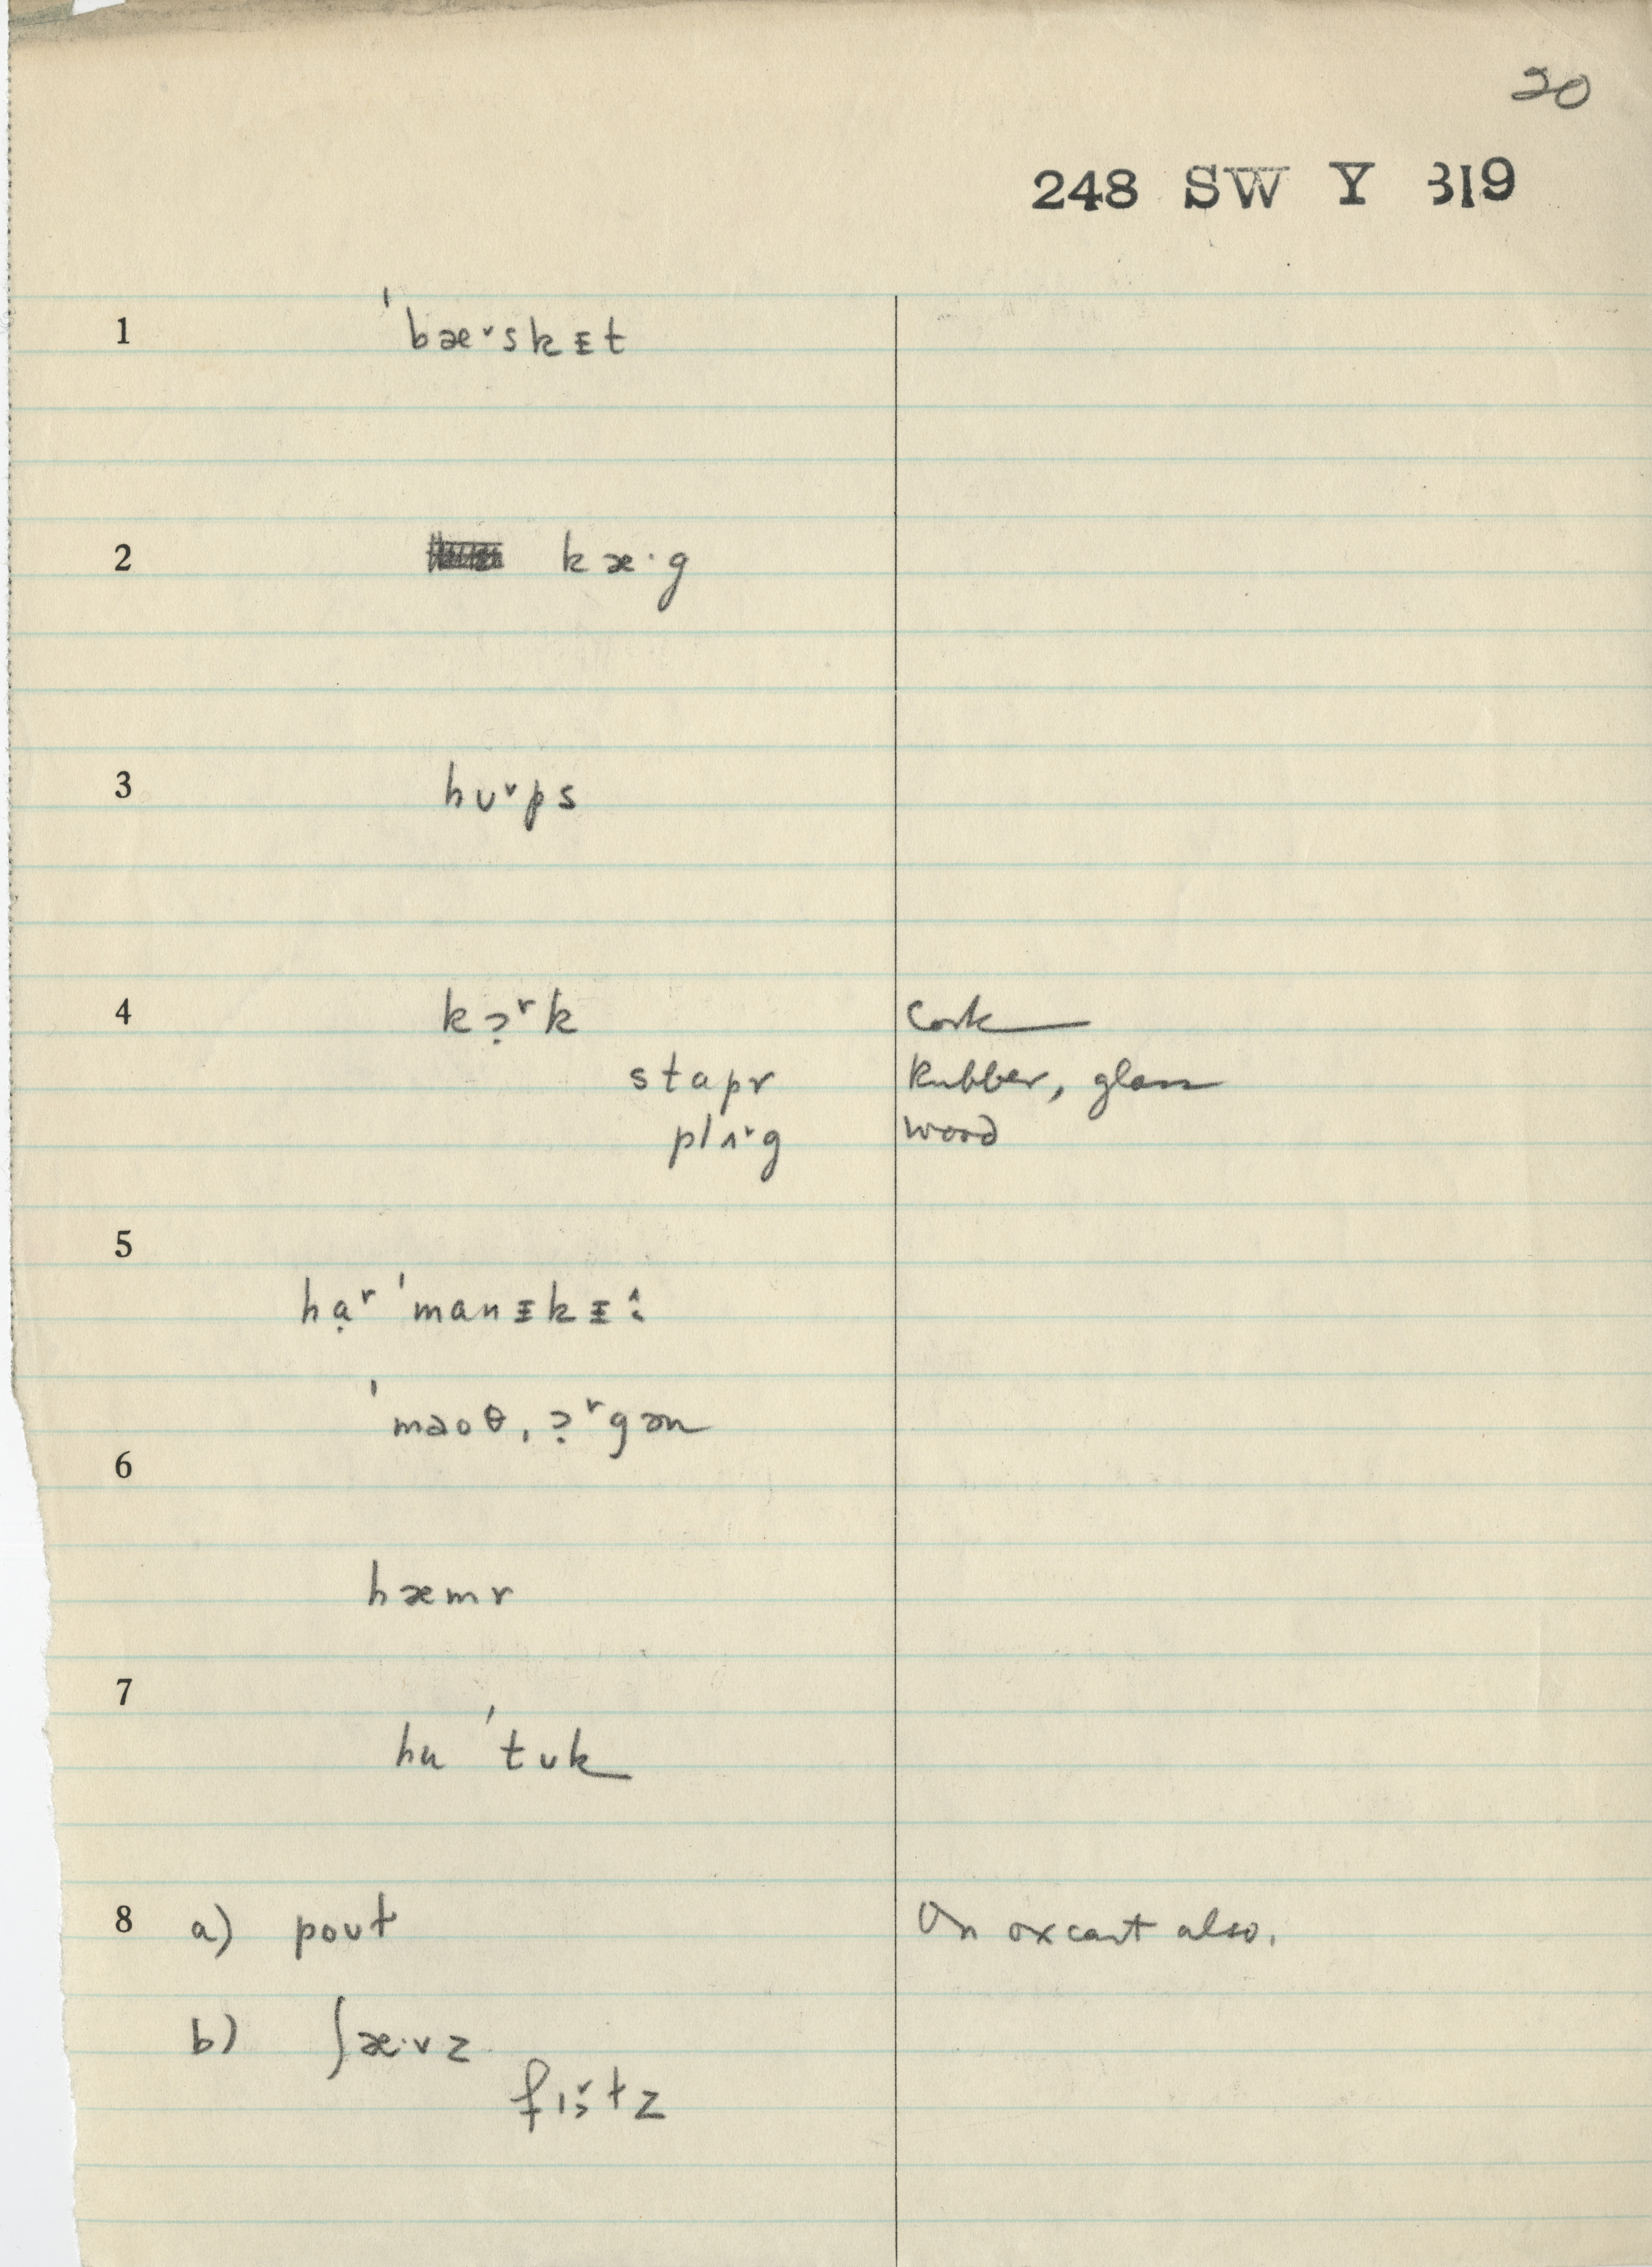 20
248 SW Y 319
1 ˈbæ˅skᵻt
2 kæ·g
3 hʊ˅ps
4 kɔ̣˞k Cork
stapr Rubber, glass
plʌ˅g wood
5
hạ˞ ˈmanᵻkᵻ^:
ˈmaoθ ˌɔ̣˞gən
6
hæmr
7
hu ˈtʊk
8 a) poʊt On oxcart also.
b) ʃæ·vz